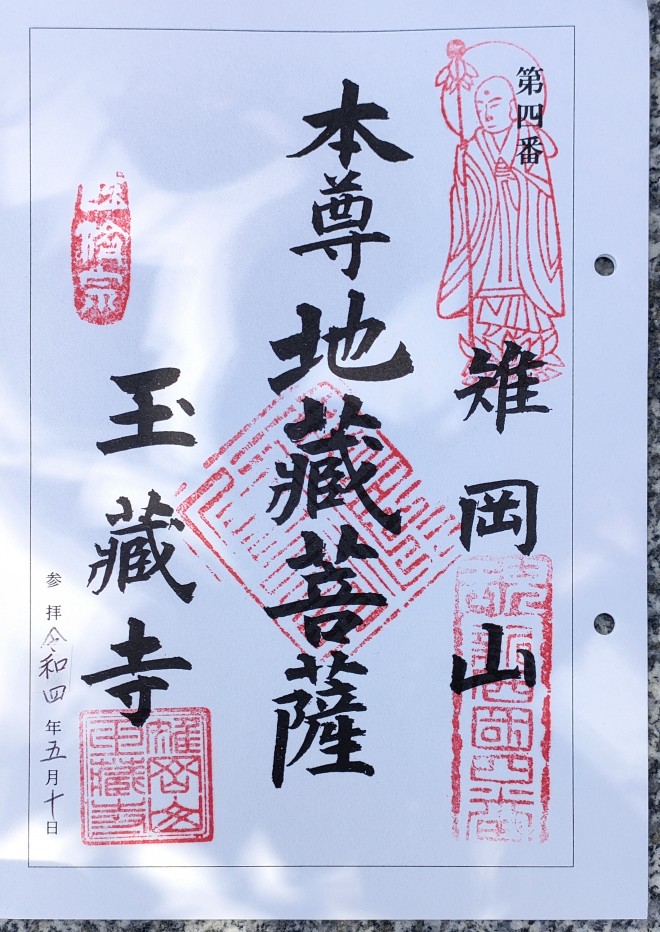 第四番
雉岡山
本尊地藏菩薩
玉藏寺
雉岡山
玉藏寺
参拝令和四年五月十日